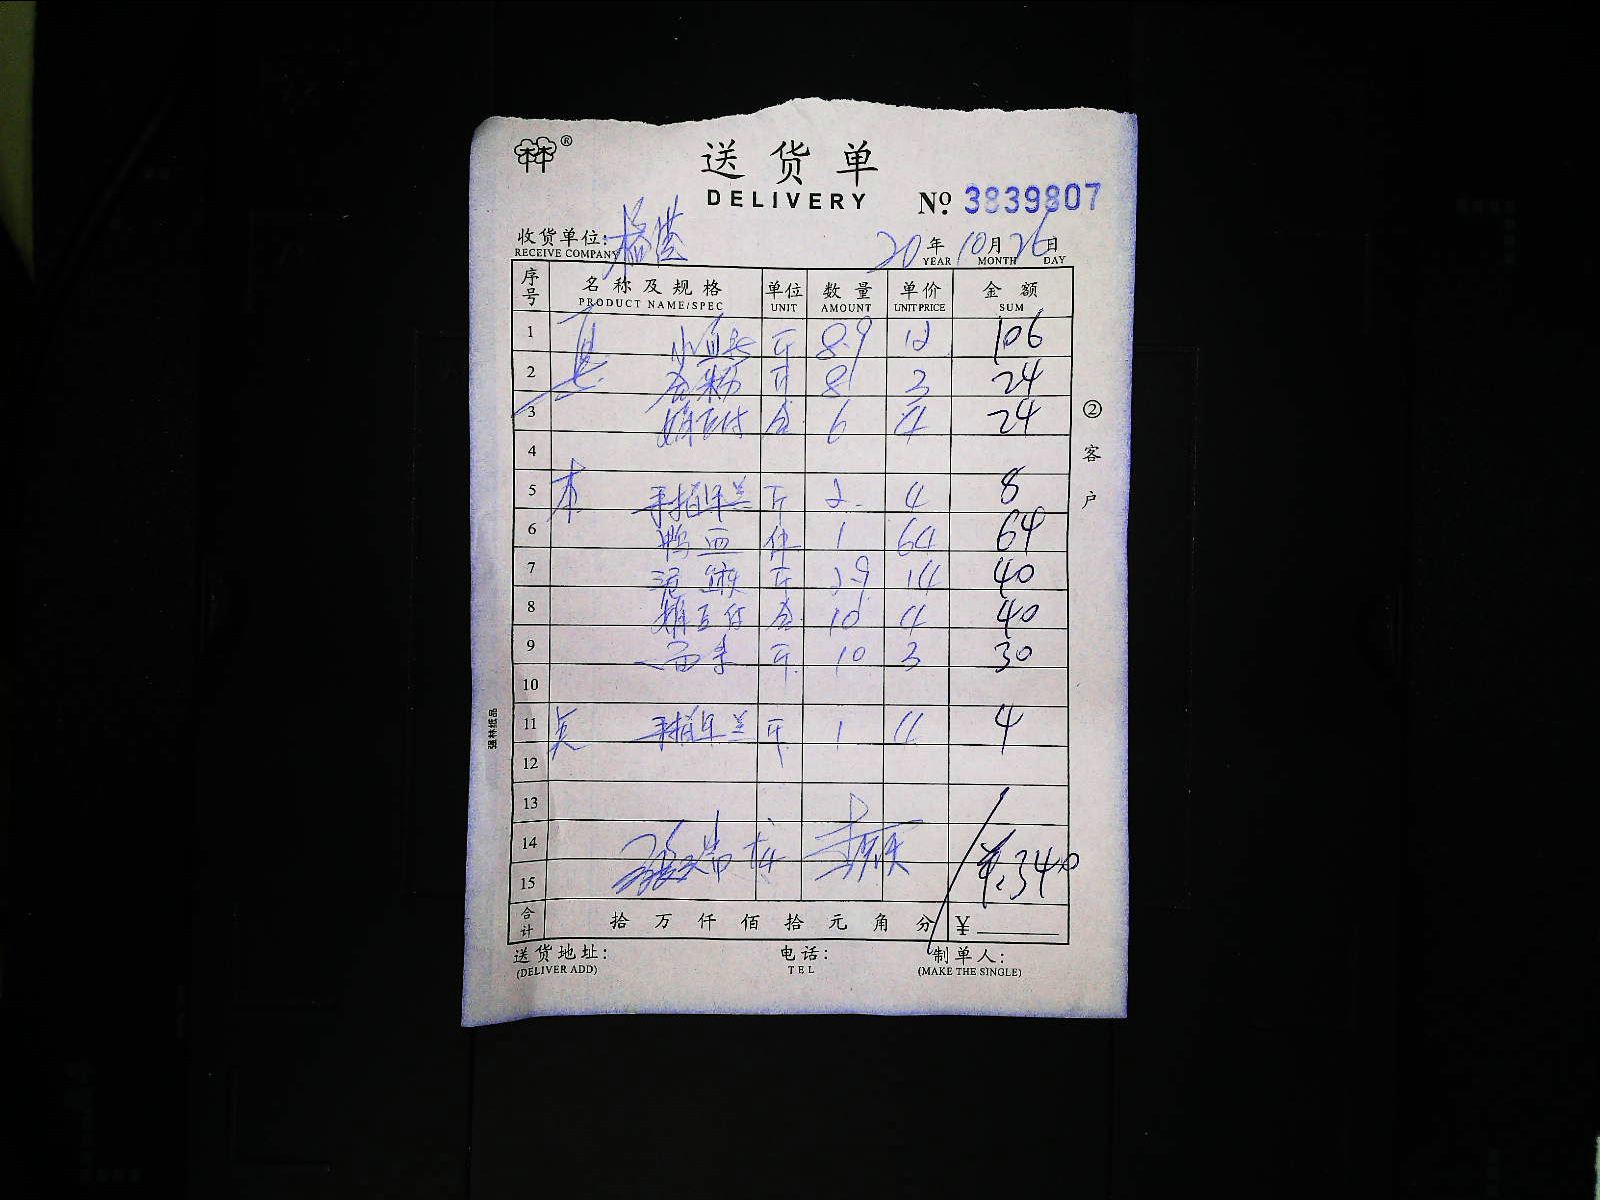 ®
送货单
DELIVERY
№ 3839807
收货单位: 杨洪
RECEIVE COMPANY
20年10月26日
YEAR MONTH DAY
序号 名称及规格 单位 数量 单价 金额
PRODUCT NAME/SPEC UNIT AMOUNT UNIT PRICE SUM
1 斤 8.9 12 106
2 斤 8 3 24
3 盒 6 4 24
4
5 本 斤 2 4 8
6 鸭血 件 1 64 64
7 泥鳅 斤 2.9 14 40
8 盒 10 4 40
9 斤 10 3 30
10
11 斤 1 4 4
12
13
14
15 340
合计 拾 万 仟 佰 拾 元 角 分 ¥
送货地址: 电话: 制单人:
(DELIVER ADD) TEL (MAKE THE SINGLE)
②客户
强林纸品